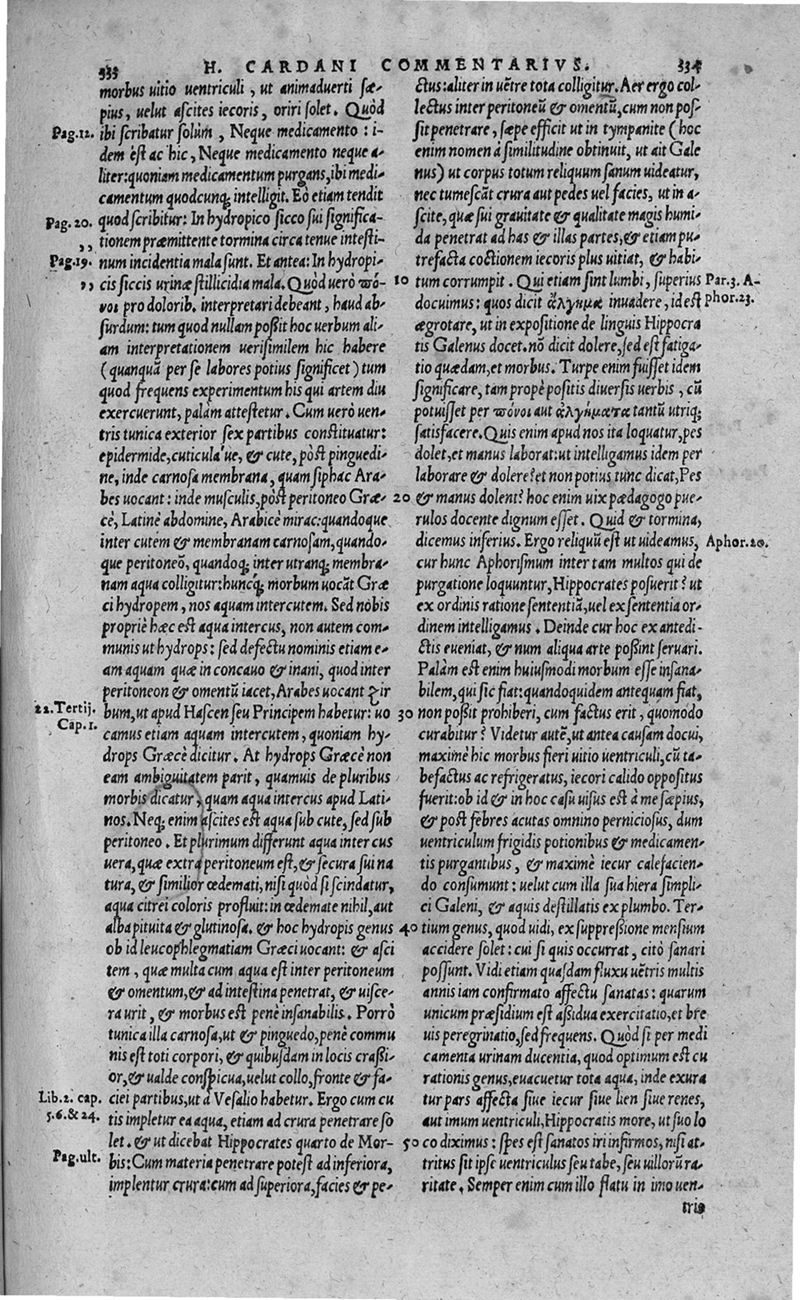 333 H. CARDANI COMMENTARIVS. 334
morbus uitio uentriculi, ut animaduerti sæ-
pius, uelut ascites iecoris, oriri solet. Quòd
Pag.12. ibi scribatur solum, Neque medicamento: i-
dem est ac hic, Neque medicamento neque a-
liter: quoniam medicamentum purgans, ibi medi-
camentum quodcunq; intelligit. Eò etiam tendit
Pag.20. quod scribitur: In hydropico sicco sui significa-
,, tionem præmittente tormina circa tenue intesti-
Pag.19. num incidentia mala sunt. Et antea: In hydropi-
,, cis siccis urinæ stillicidia mala. Quòd uerò πό-
νοι pro dolorib. interpretari debeant, haud ab-
surdum: tum quod nullam possit hoc uerbum ali-
am interpretationem uerisimilem hic habere
(quanquā per se labores potius significet) tum
quod frequens experimentum his qui artem diu
exercuerunt, palàm attestetur. Cum uerò uen-
tris tunica exterior sex partibus constituatur:
epidermide, cuticula'ue, & cute, pòst pinguedi-
ne, inde carnosa membrana, quam siphac Ara-
bes uocant: inde musculis, pòst peritoneo Græ-
cè, Latinè abdomine, Arabicè mirac: quandoque
inter cutem & membranam carnosam, quando-
que peritoneō, quandoq; inter utranq; membra-
nam aqua colligitur: huncq́; morbum uocāt Græ
ci hydropem, nos aquam intercutem. Sed nobis
propriè hæc est aqua intercus, non autem com-
munis ut hydrops: sed defectu nominis etiam e-
am aquam quæ in concauo & inani, quod inter
peritoneon & omentū iacet, Arabes uocant zir
22.Tertij. bum, ut apud Hascen seu Principem habetur: uo
Cap.1. camus etiam aquam intercutem, quoniam hy-
drops Græcè dicitur. At hydrops Græcè non
eam ambiguitatem parit, quamuis de pluribus
morbis dicatur, quam aqua intercus apud Lati-
nos. Neq; enim ascites est aqua sub cute, sed sub
peritoneo. Et plurimum differunt aqua intercus
uera, quæ extra peritoneum est, & secura sui na
tura, & similior œdemati, nisi quòd si scindatur,
aqua citrei coloris profluit: in œdemate nihil, aut
alba pituita & glutinosa, & hoc hydropis genus
ob id leucophlegmatiam Græci uocant: & asci
tem, quæ multa cum aqua est inter peritoneum
& omentum, & ad intestina penetrat, & uisce-
ra urit, & morbus est penè insanabilis. Porrò
tunica illa carnosa, ut & pinguedo, penè commu
nis est toti corpori, & quibusdam in locis crassi-
or, & ualde conspicua, uelut collo, fronte & fa-
Lib.2. cap. ciei partibus, ut à Vesalio habetur. Ergo cum cu
5.6.&24. tis impletur ea aqua, etiam ad crura penetrare so
let. & ut dicebat Hippocrates quarto de Mor-
Pag.ult. bis: Cum materia penetrare potest ad inferiora,
implentur crura: cum ad superiora, facies & pe-
ctus: aliter in uētre tota colligitur. Aer ergo col-
lectus inter peritoneū & omentū, cum non pos-
sit penetrare, sæpe efficit ut in tympanite (hoc
enim nomen à similitudine obtinuit, ut ait Gale
nus) ut corpus totum reliquum sanum uideatur,
nec tumescāt crura aut pedes uel facies, ut in a-
scite, quæ sui grauitate & qualitate magis humi-
da penetrat ad has & illas partes, & etiam pu-
trefacta coctionem iecoris plus uitiat, & habi-
10 tum corrumpit. Qui etiam sint lumbi, superius Par.3. A-
docuimus: quos dicit ἄλγημα inuadere, id est phor.23.
ægrotare, ut in expositione de linguis Hippocra
tis Galenus docet. nō dicit dolere, sed est fatiga-
tio quædam, et morbus. Turpe enim fuisset idem
significare, tam propè positis diuersis uerbis, cū
potuisset per πόνοι aut ἀλγήματα tantū utriq;
satisfacere. Quis enim apud nos ita loquatur, pes
dolet, et manus laborat: ut intelligamus idem per
laborare & dolere? et non potius tunc dicat, Pes
20 & manus dolent? hoc enim uix pædagogo pue-
rulos docente dignum esset. Quid & tormina,
dicemus inferius. Ergo reliquū est ut uideamus, Aphor.20.
cur hunc Aphorismum inter tam multos qui de
purgatione loquuntur, Hippocrates posuerit? ut
ex ordinis ratione sententiā, uel ex sententia or-
dinem intelligamus. Deinde cur hoc ex antedi-
ctis eueniat, & num aliqua arte possint seruari.
Palàm est enim huiusmodi morbum esse insana-
bilem, qui sic fiat: quandoquidem antequam fiat,
30 non possit prohiberi, cum factus erit, quomodo
curabitur? Videtur autē, ut antea causam docui,
maximè hic morbus fieri uitio uentriculi, cū ta-
befactus ac refrigeratus, iecori calido oppositus
fuerit: ob id & in hoc casu uisus est à me sæpius,
& post febres acutas omnino perniciosus, dum
uentriculum frigidis potionibus & medicamen-
tis purgantibus, & maximè iecur calefacien-
do consumunt: uelut cum illa sua hiera simpli-
ci Galeni, & aquis destillatis ex plumbo. Ter-
40 tium genus, quod uidi, ex suppressione mensium
accidere solet: cui si quis occurrat, citò sanari
possunt. Vidi etiam quasdam fluxu uētris multis
annis iam confirmato affectu sanatas: quarum
unicum præsidium est assidua exercitatio, et bre
uis peregrinatio, sed frequens. Quòd si per medi
camenta urinam ducentia, quod optimum est cu
rationis genus, euacuetur tota aqua, inde exura
tur pars affecta siue iecur siue lien siue renes,
aut imum uentriculi, Hippocratis more, ut suo lo
50 co diximus: spes est sanatos iri infirmos, nisi at-
tritus sit ipse uentriculus seu tabe, seu uillorū ra-
ritate. Semper enim cum illo flatu in imo uen-
tris